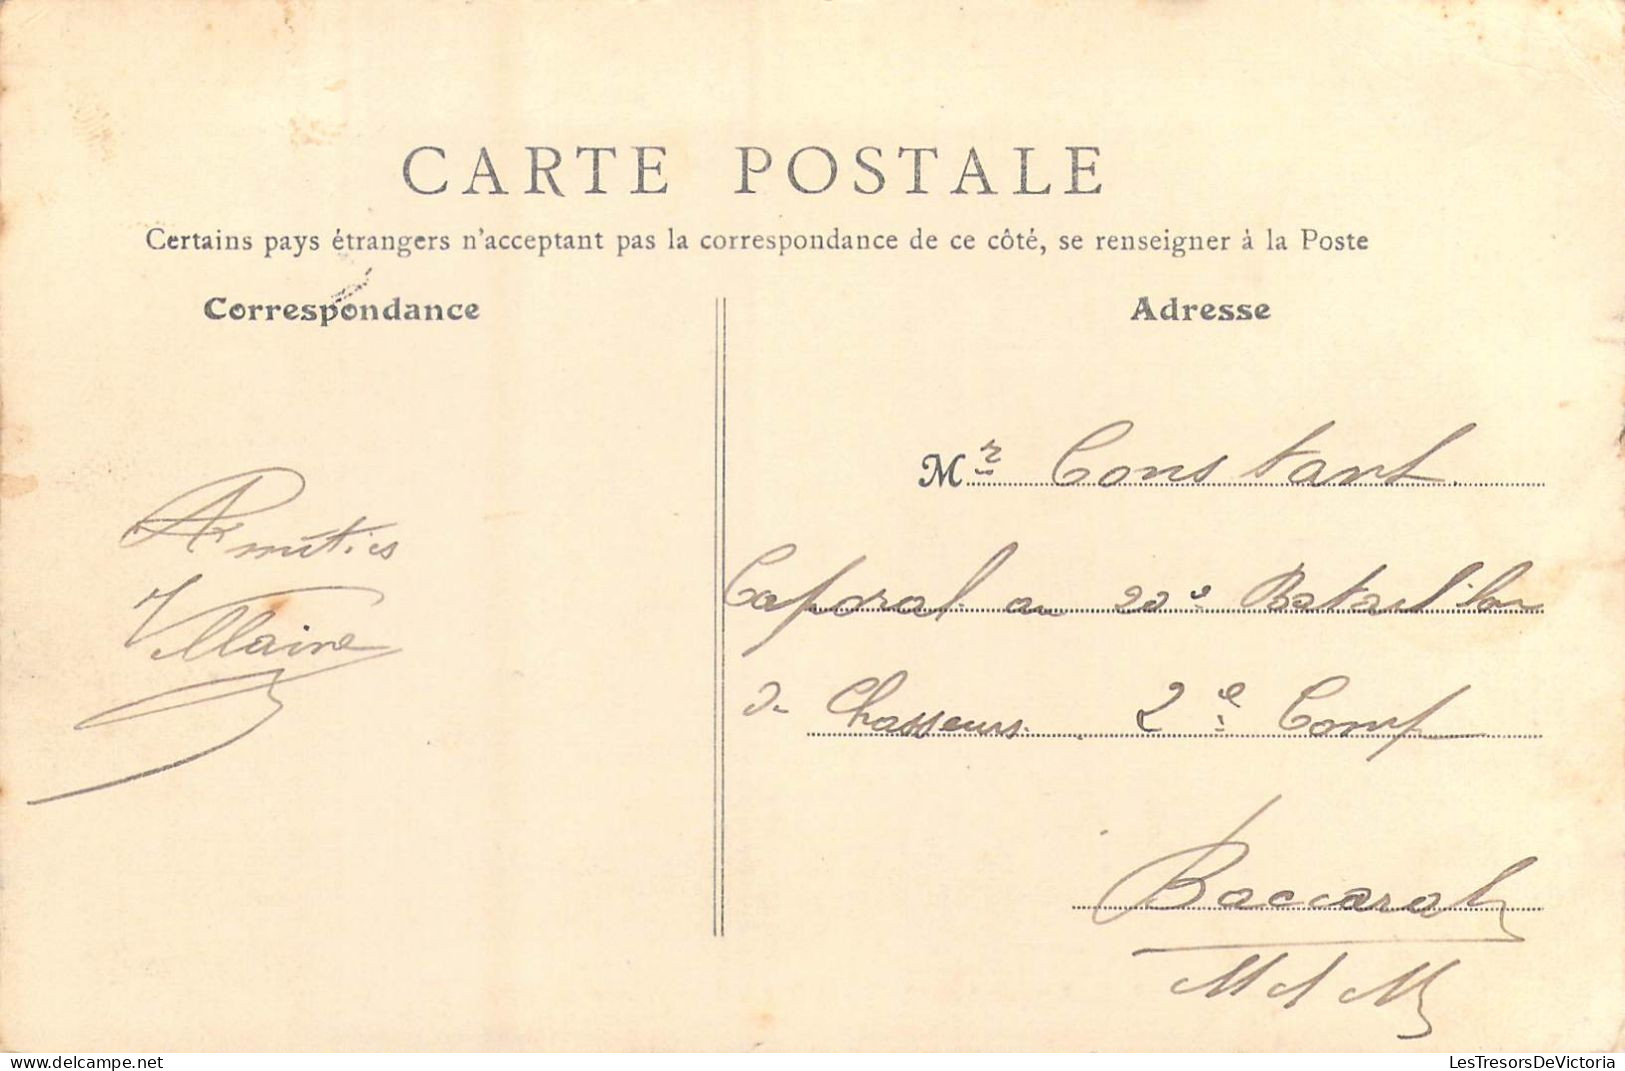 CARTE POSTALE
Certains pays étrangers n'acceptant pas la correspondance de ce côté, se renseigner à la Poste
Correspondance
Adresse
Mr Constant
Caporal au 20e Bataillon
de Chasseurs 2e Comp
Baccarat
M et M
Amitiés
LesTresorsDeVictoria